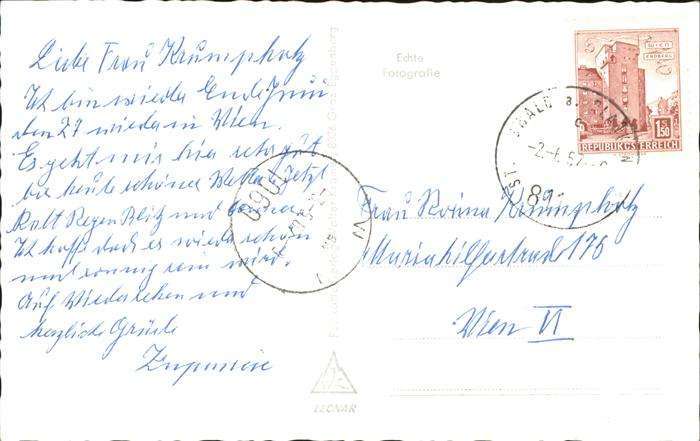 Liebe Frau Krumpholz
Ich bin wieder Ende Juni
den 27 wieder in Wien.
Es geht mir hier sehr gut
bis heute schönes Wetter Jetzt
Kalt Regen Blitz und Donner
Ich hoffe doch es wieder schön
und sonnig sein wird.
Auf Wiedersehen und
herzliche Grüße
Echte
Fotografie
WIEN
ERDBERG
1.50
REPUBLIK ÖSTERREICH
ST. OSWALD
Frau Rosina Krumpholz
Mariahilferstraße 176
Wien VI
1060
LEONAR